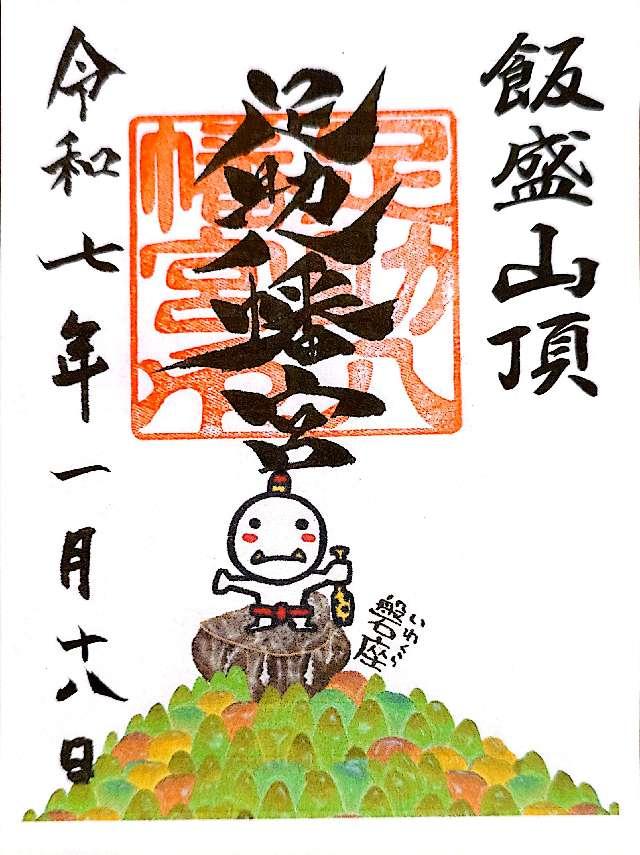 飯盛山頂
足助八幡宮
磐座
いわくら
令和七年一月十八日